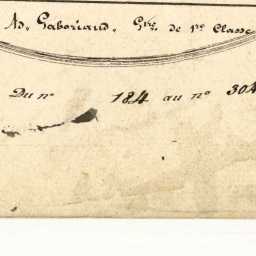 Ad. Gaboriaud. Gtre de 1re Classe
Du no 184 au no 304